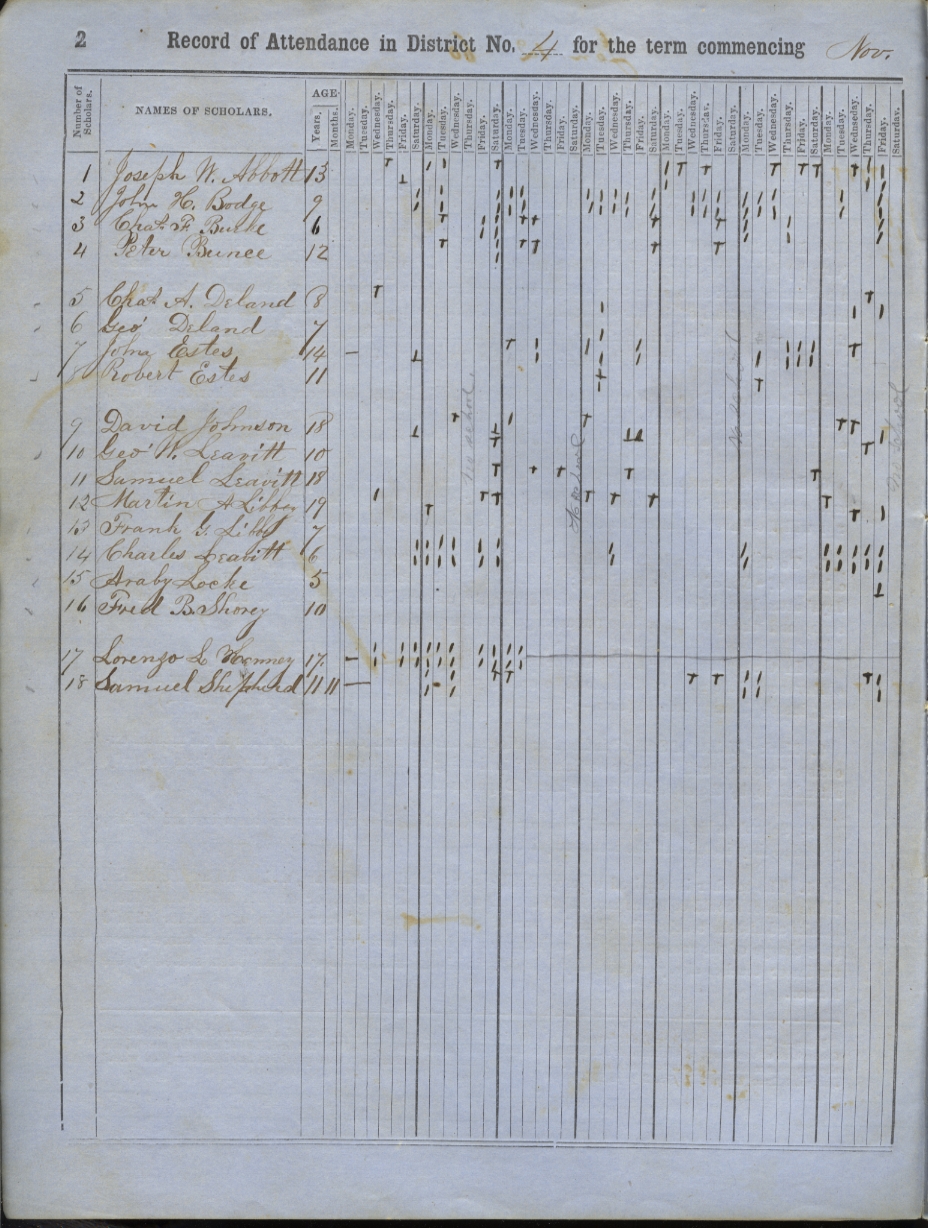 2 Record of Attendance in District No. 4 for the term commencing Nov.
Number of Scholars. NAMES OF SCHOLARS. AGE Years. Months. Monday. Tuesday. Wednesday. Thursday. Friday. Saturday. Monday. Tuesday. Wednesday. Thursday. Friday. Saturday. Monday. Tuesday. Wednesday. Thursday. Friday. Saturday. Monday. Tuesday. Wednesday. Thursday. Friday. Saturday. Monday. Tuesday. Wednesday. Thursday. Friday. Saturday. Monday. Tuesday. Wednesday. Thursday. Friday. Saturday. Monday. Tuesday. Wednesday. Thursday. Friday. Saturday.
1 Joseph W. Abbott 13
2 John H. Bodge 9
3 Chas. F Burke 6
4 Peter Bunce 12
5 Chas A. Deland 8
6 Geo Deland 7
7 John Estes 14
Robert Estes 11
9 David Johnson 18
10 Geo W. Leavitt 10
11 Samuel Leavitt 18
12 Martin A Libbey 19
13 Frank G. Libby 7
14 Charles Leavitt 6
15 Araby Locke 5
16 Fred B. Shorey 10
17 Lorenzo L 17.
18 Samuel Shepherd 11 11
no school.
No school
No school